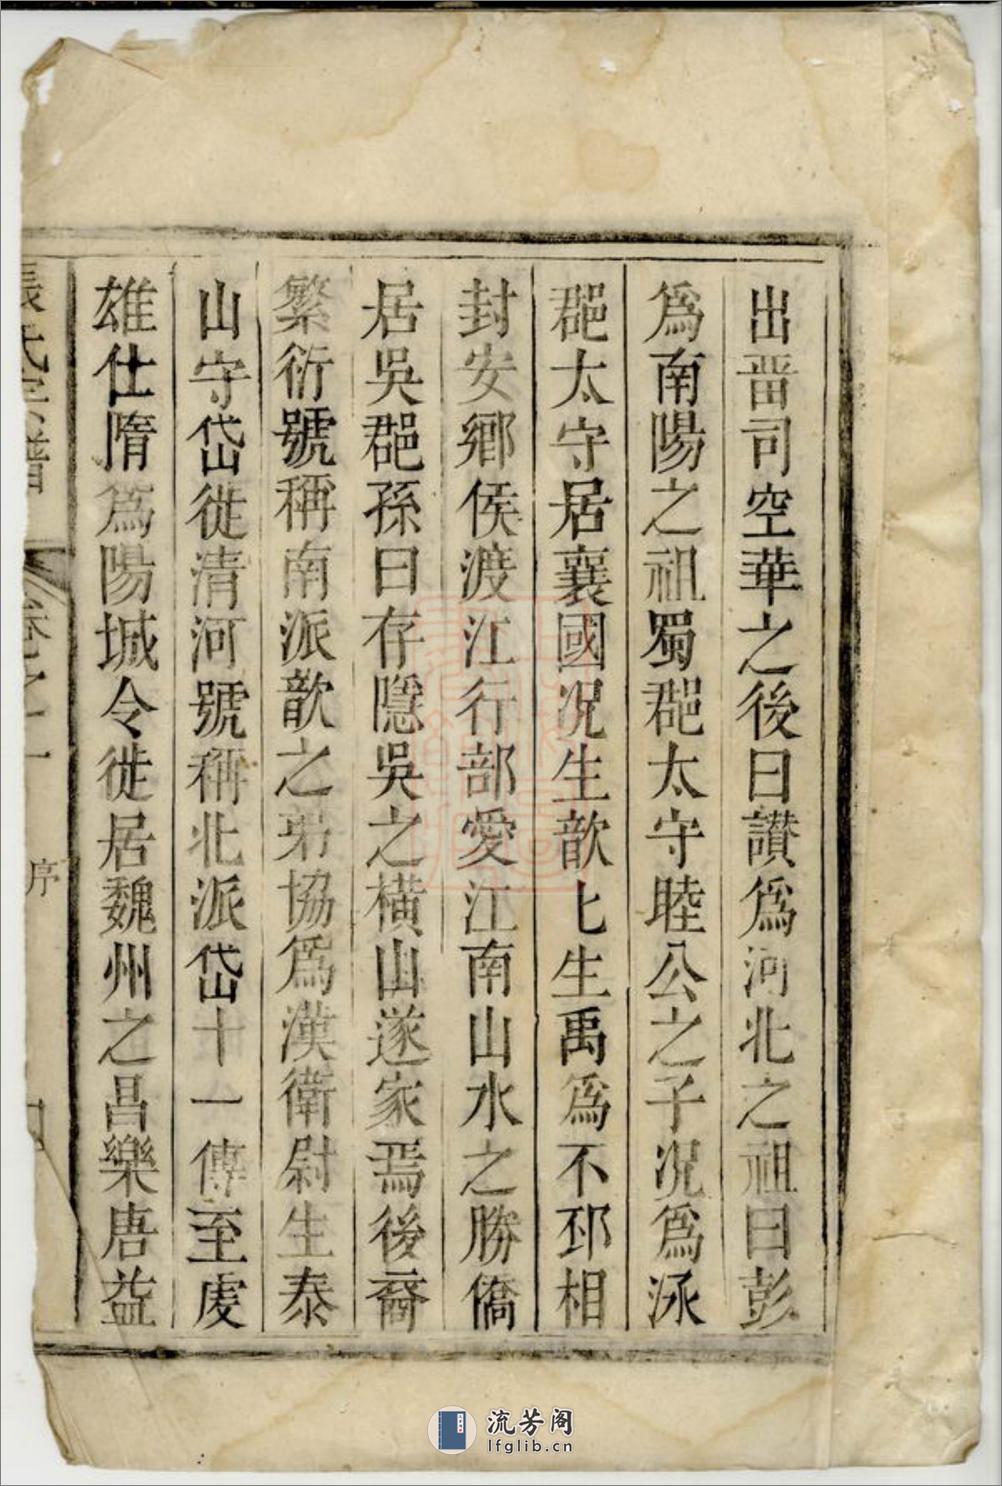 出晋司空華之後曰讃爲河北之祖曰彭
爲南陽之祖蜀郡太守睦公之子况爲涿
郡太守居襄國况生歆歆生禹爲不邳相
封安鄉侯渡江行部愛江南山水之勝僑
居吳郡孫曰存隱吳之橫山遂家焉後裔
繁衍號稱南派歆之弟協爲漢衛尉生泰
山守岱徙清河號稱北派岱十一傳至虔
雄仕隋爲陽城令徙居魏州之昌樂唐益
張氏宗譜
卷之一
序
流芳阁
lfglib.cn